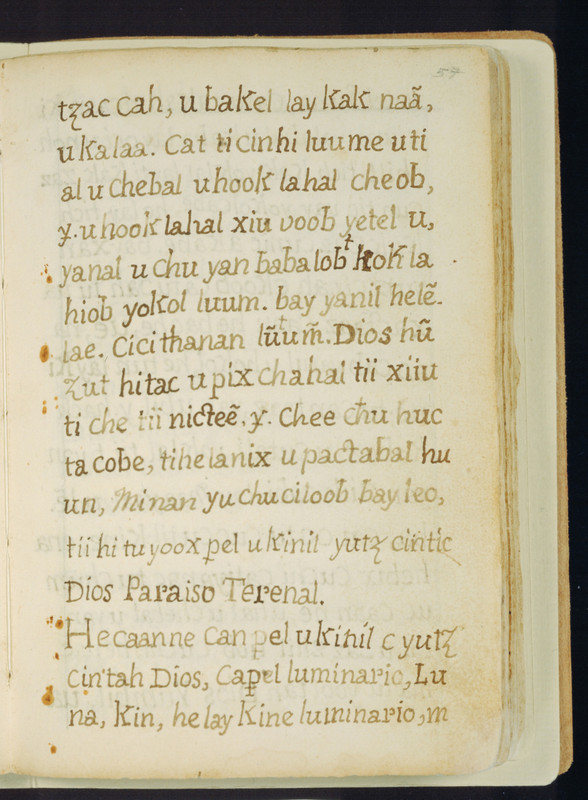 57
tꜩac cah, u bakel lay kak naã,
u kalaa. Cat ti cinhi luume uti
al u chebal u hook lahal cheob,
y. u hook lahal xiu voob yetel u,
yanal u chu yan babalob hokla
hiob yokol luum. bay yanil helẽ.
lae. Cicithanan lũum̃. Dios hũ
Zut hi tac u pixchahal tii xiiu
ti che tii nicteẽ. y. Chee chu huc
ta cobe, tihelanix u pactabal hu
un, Minan yuchuciloob bay leo,
tii hi tu yoox pel u kinil yutꜩ cintic
Dios Paraiso Terenal.
Hecaanne Can pel u kinil c yutꜩ
cintah Dios, Capel luminario, Lu
na, Kin, he lay Kine luminario, m